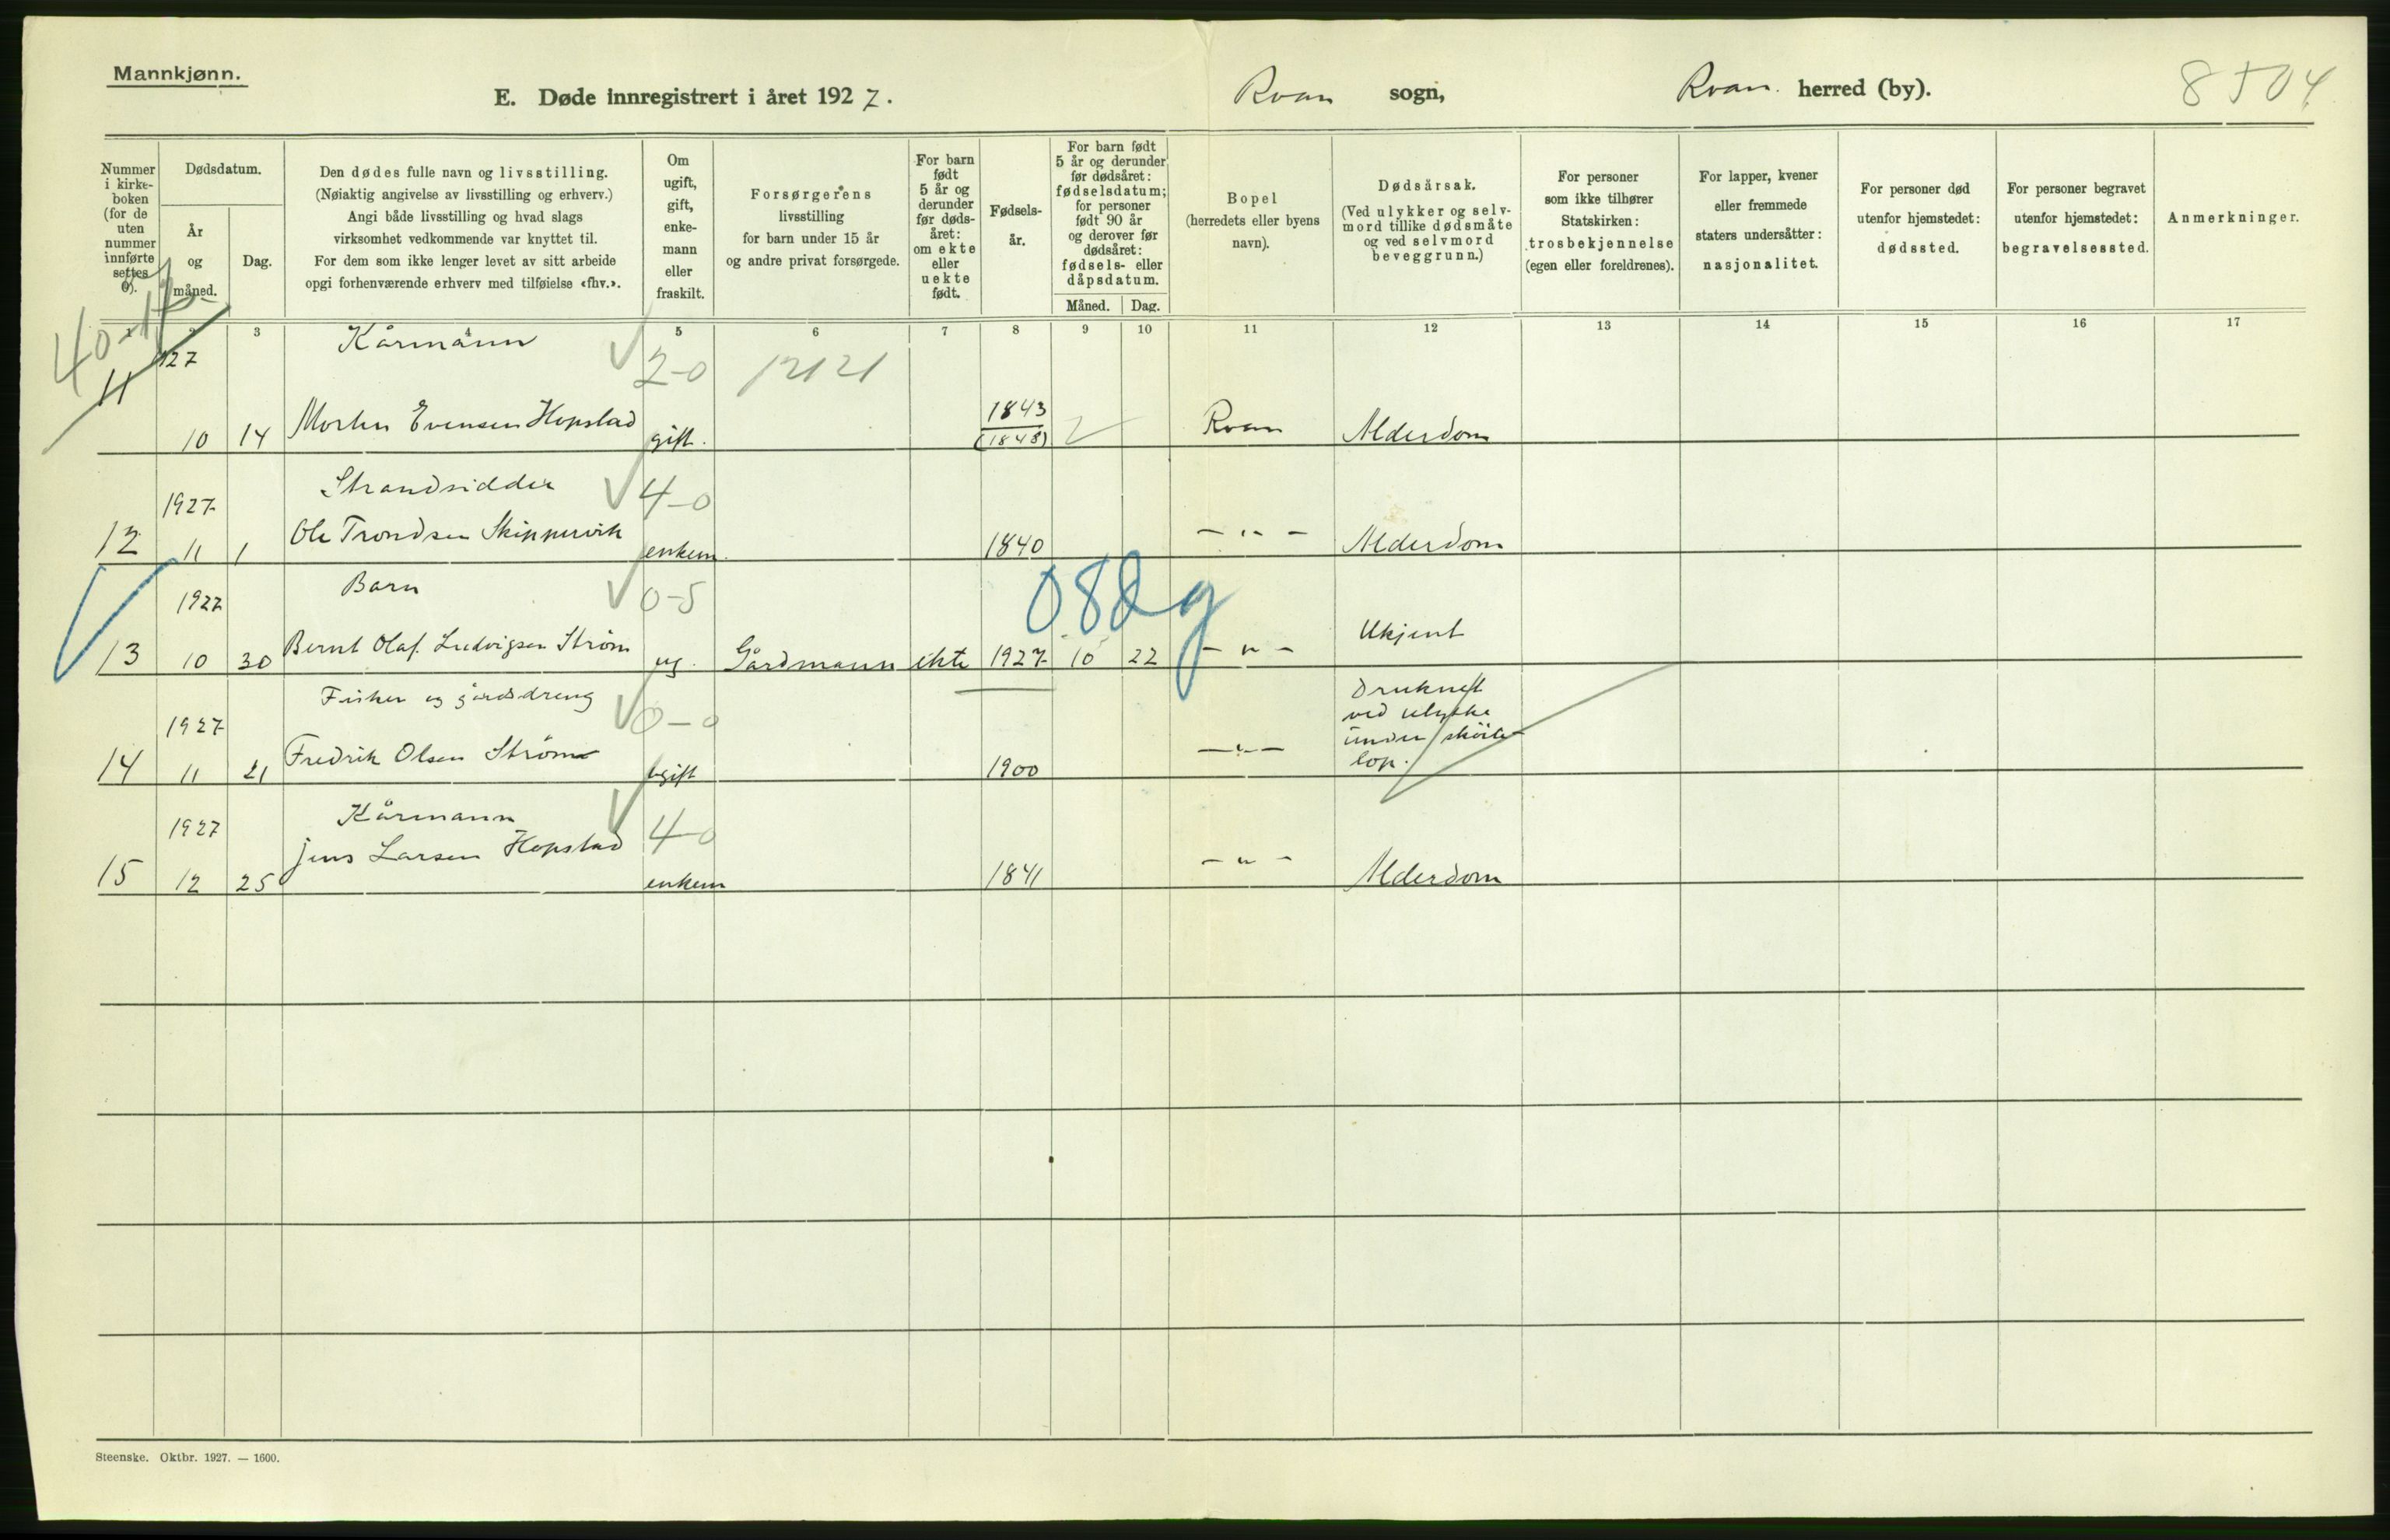 Mannkjønn.
E. Døde innregistrert i året 1927.
Roan sogn,
Roan. herred (by).
8504
Nummer i kirke-boken (for de uten nummer innførte settes 0).
Dødsdatum.
År og måned.
Dag.
Den dødes fulle navn og livsstilling.
(Nøiaktig angivelse av livsstilling og erhverv.)
Angi både livsstilling og hvad slags
virksomhet vedkommende var knyttet til.
For dem som ikke lenger levet av sitt arbeide
opgi forhenværende erhverv med tilføielse «fhv.».
Om ugift, gift, enke-mann eller fraskilt.
Forsørgerens
livsstilling
for barn under 15 år
og andre privat forsørgede.
For barn født 5 år og derunder før døds-året: om ekte eller uekte født.
Fødsels-år.
For barn født 5 år og derunder før dødsåret: fødselsdatum; for personer født 90 år og derover før dødsåret: fødsels- eller dåpsdatum.
Måned.
Dag.
Bopel
(herredets eller byens navn).
Dødsårsak.
(Ved ulykker og selv-mord tillike dødsmåte og ved selvmord beveggrunn.)
For personer som ikke tilhører Statskirken: trosbekjennelse (egen eller foreldrenes).
For lapper, kvener eller fremmede staters undersåtter: nasjonalitet.
For personer død utenfor hjemstedet: dødssted.
For personer begravet utenfor hjemstedet: begravelsessted.
Anmerkninger.
1 2 3 4 5 6 7 8 9 10 11 12 13 14 15 16 17
Kårmann
11 27 2-0 12121
10 14 Morten Evensen Hopstad gift. 1843 (1848) Roan Alderdom
Strandsidder
1927 4-0
12 11 1 Ole Trondsen Skippervik enkem. 1840 - " - Alderdom
Barn
1927 0-5 08dg
13 10 30 Bernt Olaf Ludvigsen Strøm ug. Gårdmann ekte 1927 10 22 - " - Ukjent
Fisker og gårdsdreng
1927 0-0
14 11 21 Fredrik Olsen Strøm ugift 1900 - " - Druknet
ved ulykke
under skøite-
lop.
Kårmann
1927 4-0
15 12 25 Jens Larsen Hopstad enkem 1841 - " - Alderdom
Steenske. Oktbr. 1927. — 1600.